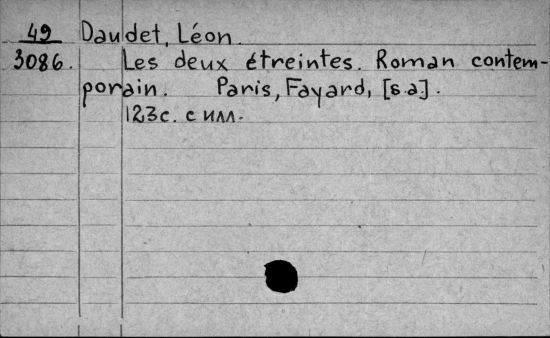 49 Daudet, Léon.
3086. Les deux étreintes. Roman contem-
porain. Paris, Fayard, [s.a].
123c. с илл.